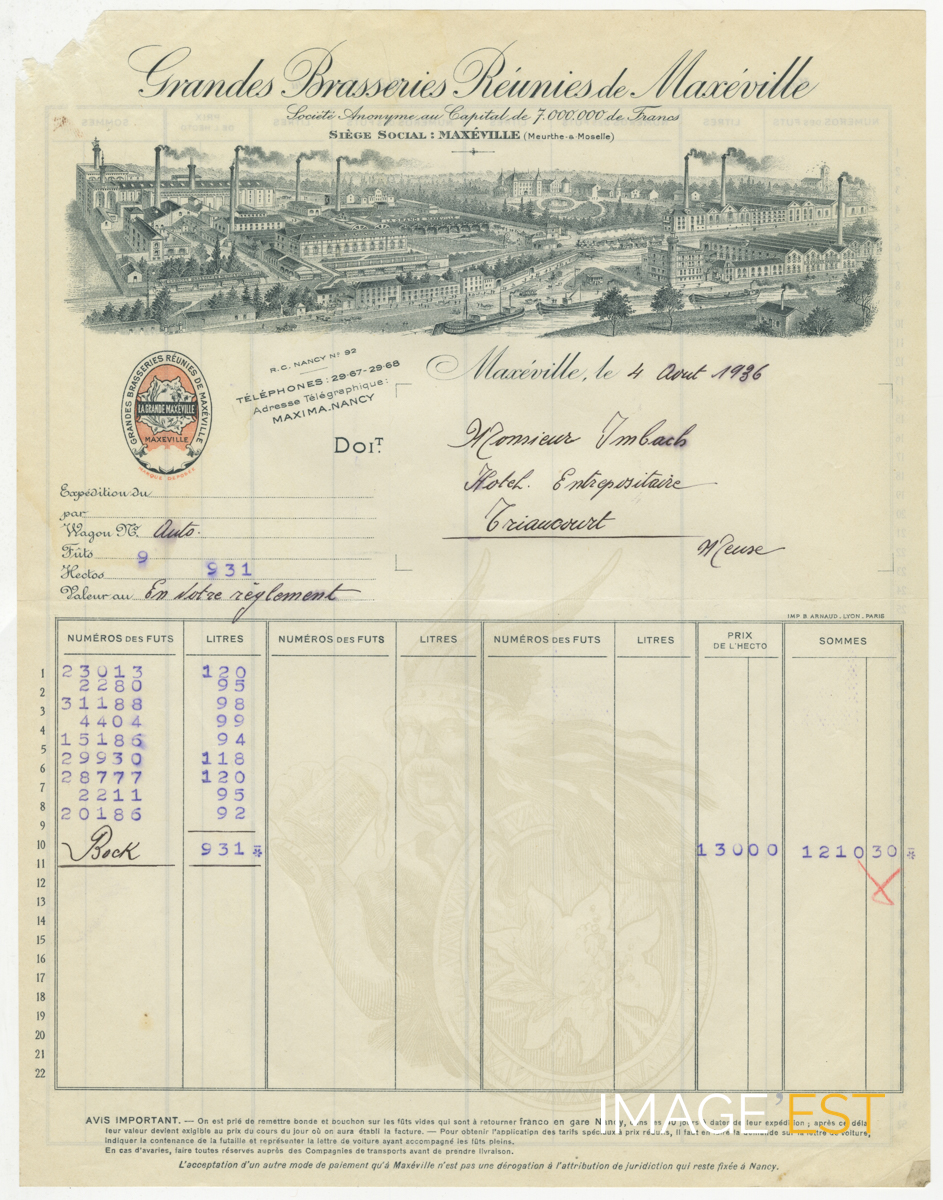 Grandes Brasseries Réunies de Maxéville
Société Anonyme au Capital de 7.000.000 de Francs
SIÈGE SOCIAL : MAXÉVILLE (Meurthe-&-Moselle)
GRANDES BRASSERIES RÉUNIES DE MAXÉVILLE
LA GRANDE MAXÉVILLE
MAXÉVILLE
MARQUE DÉPOSÉE
R.C. NANCY Nº 92
TÉLÉPHONES : 29-67-29-68
Adresse Télégraphique :
MAXIMA.NANCY
Maxéville, le 4 Aout 1936
DOIT
Monsieur Imbach
Hotel. Entrepositaire
Triaucourt
Meuse
Expédition du
par
Wagon Nº Auto.
Fûts 9
Hectos 931
Valeur au En Notre règlement
IMP. B. ARNAUD. LYON. PARIS
NUMÉROS DES FUTS LITRES NUMÉROS DES FUTS LITRES NUMÉROS DES FUTS LITRES PRIX DE L'HECTO SOMMES
1 23013 120
2 2280 95
3 31188 98
4 4404 99
5 15186 94
6 29930 118
7 28777 120
8 2211 95
9 20186 92
10 Bock 931 13000 121030
11
12
13
14
15
16
17
18
19
20
21
22
AVIS IMPORTANT. — On est prié de remettre bonde et bouchon sur les fûts vides qui sont à retourner franco en gare Nancy, jours date de leur expédition ; après ce délai
leur valeur devient exigible au prix du cours du jour où on aura établi la facture. — Pour obtenir l'application des tarifs spéciaux à prix réduits, il faut en faire la demande sur la lettre de voiture,
indiquer la contenance de la futaille et représenter la lettre de voiture ayant accompagné les fûts pleins.
En cas d'avaries, faire toutes réserves auprès des Compagnies de transports avant de prendre livraison.
L'acceptation d'un autre mode de paiement qu'à Maxéville n'est pas une dérogation à l'attribution de juridiction qui reste fixée à Nancy.
IMAGE EST